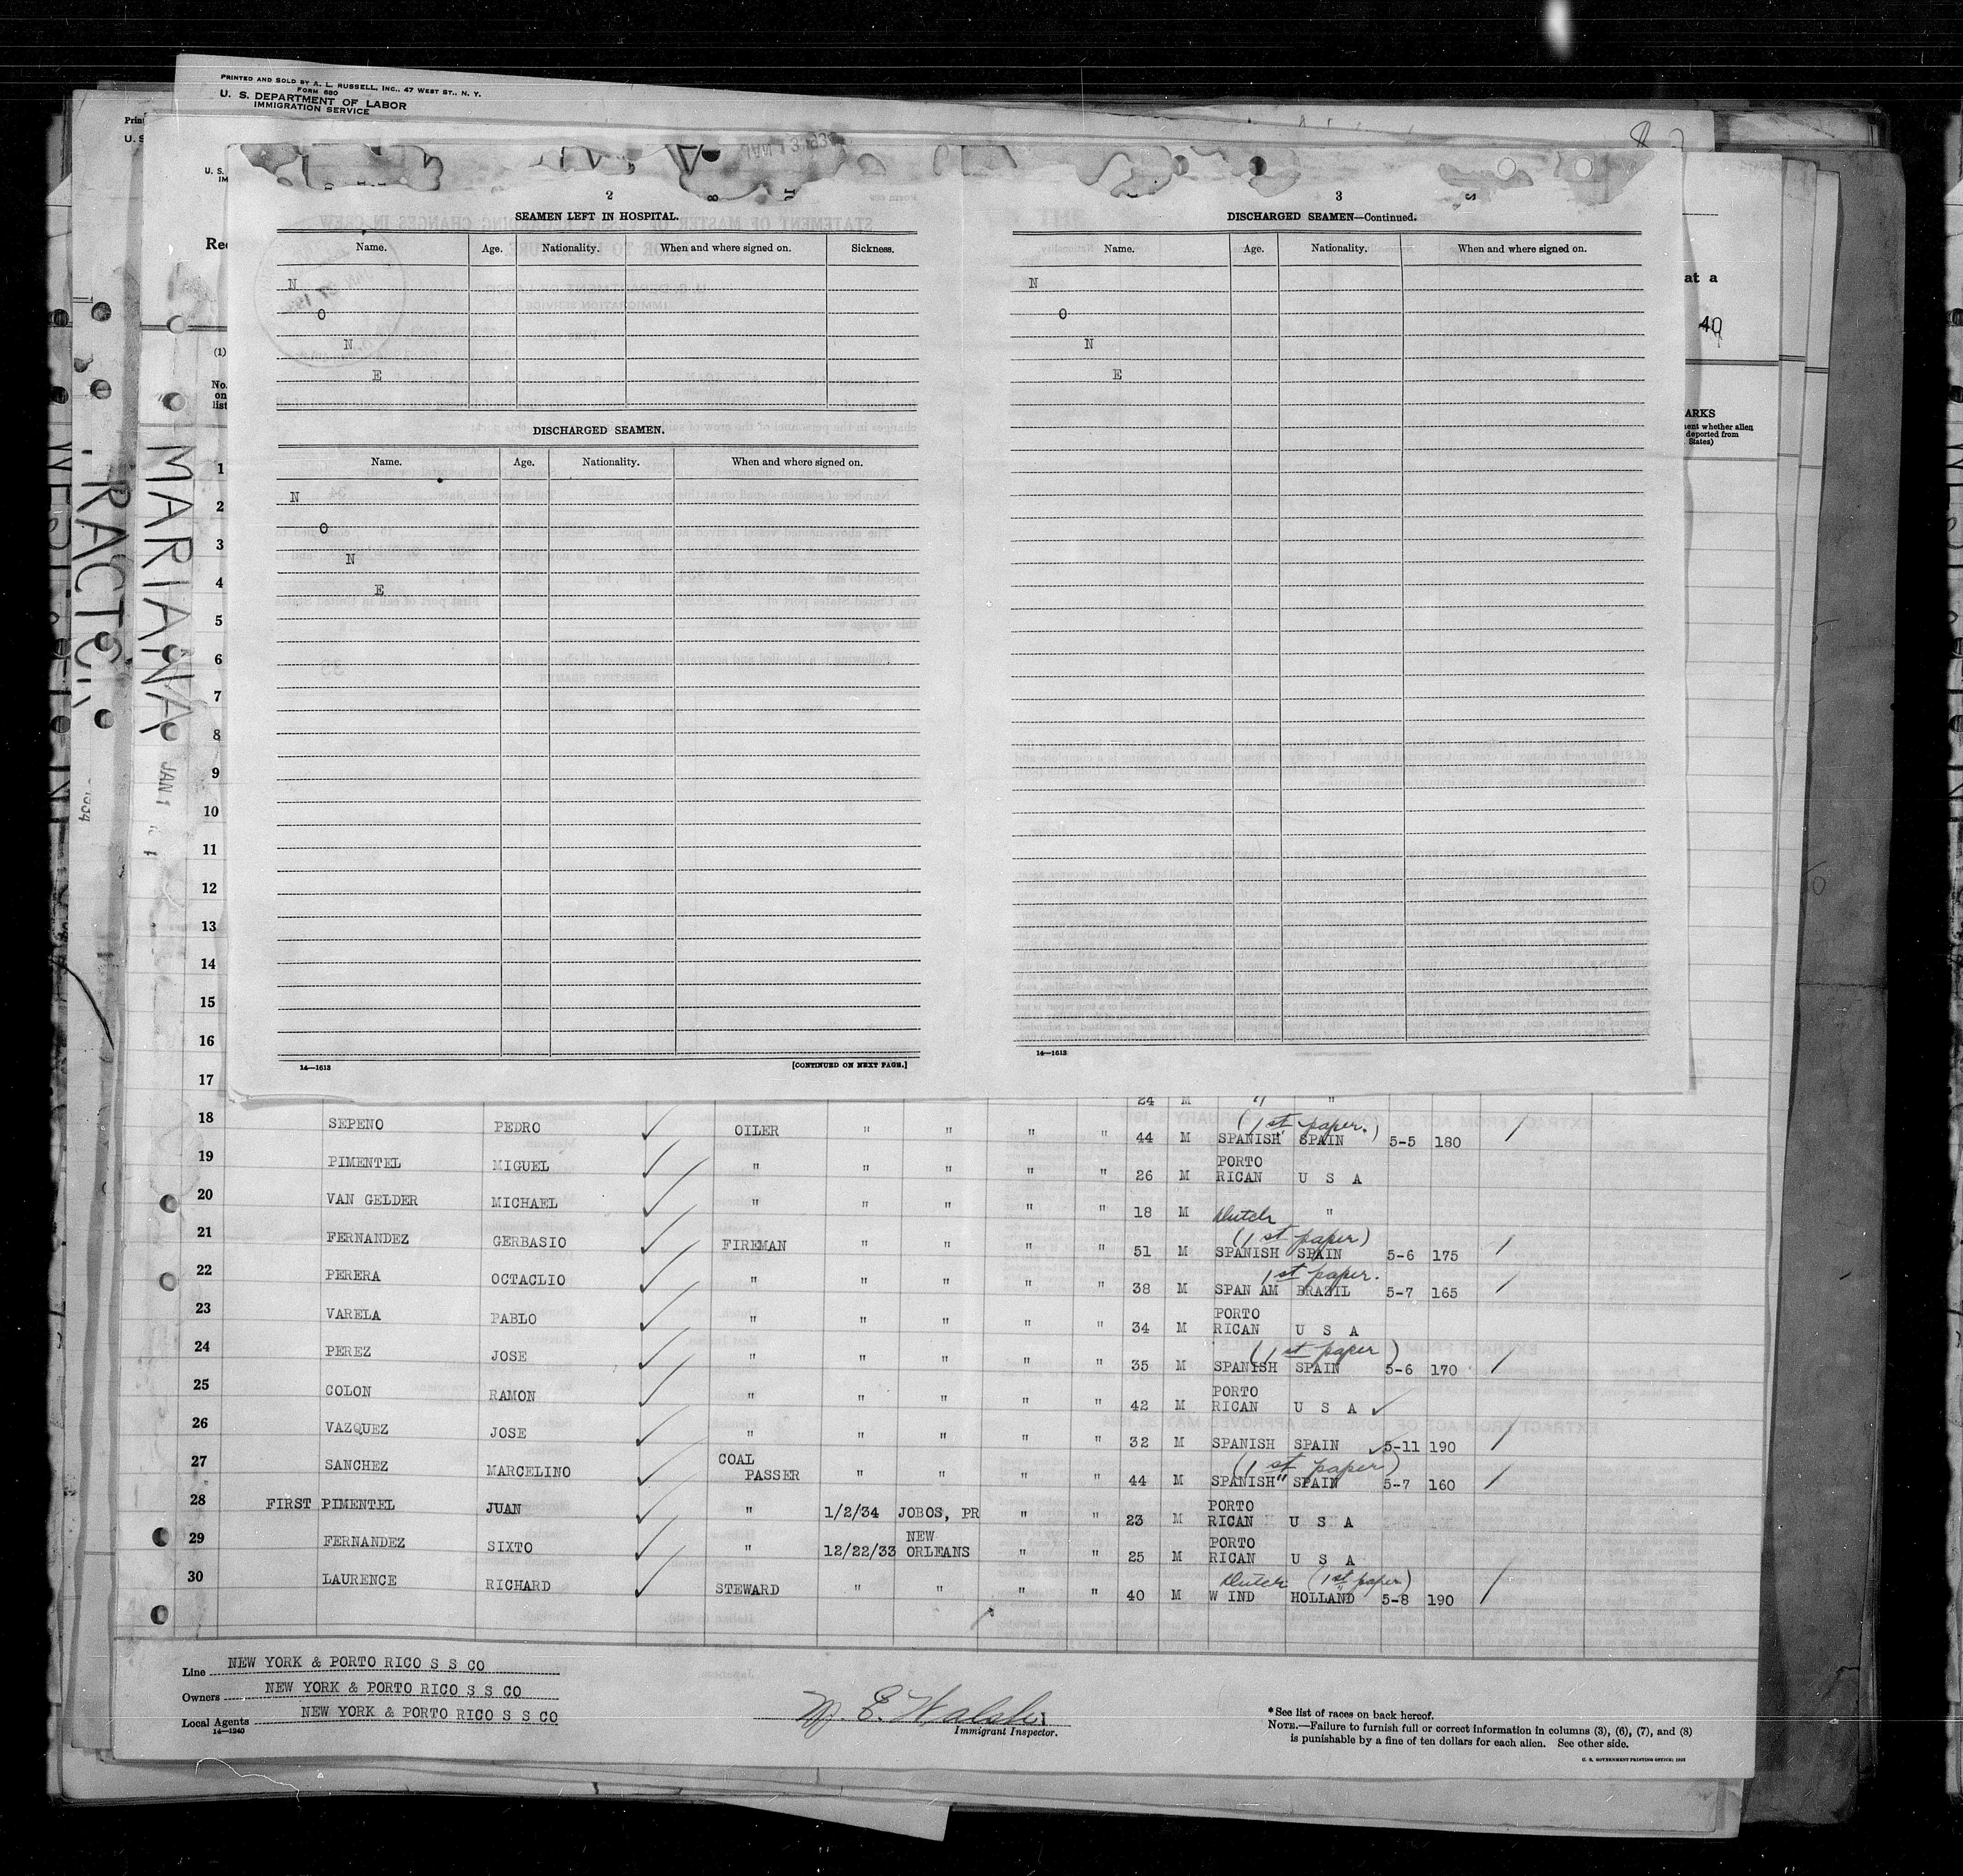 PRINTED AND SOLD BY A. L. RUSSELL, INC., 47 WEST ST., N. Y.
FORM 680
U. S. DEPARTMENT OF LABOR
IMMIGRATION SERVICE
2
SEAMEN LEFT IN HOSPITAL.
Name. Age. Nationality. When and where signed on. Sickness.
N
O
N
E
DISCHARGED SEAMEN.
Name. Age. Nationality. When and where signed on.
N
O
N
E
14—1613 [CONTINUED ON NEXT PAGE.]
3
DISCHARGED SEAMEN—Continued.
Name. Age. Nationality. When and where signed on.
N
O
N
E
14—1613
at a
40
ARKS
ment whether alien
deported from
States)
(1)
No.
on
list
MARIANA
1
2
3
4
5
6
7
8
9
10
11
12
13
14
15
16
17 24 M " "
18 SEPENO PEDRO OILER " " " " 44 M SPANISH SPAIN (1st paper.) 5-5 180
19 PIMENTEL MIGUEL " " " " " 26 M PORTO RICAN U S A
20 VAN GELDER MICHAEL " " " " " 18 M Dutch "
21 FERNANDEZ GERBASIO FIREMAN " " " " 51 M SPANISH SPAIN (1st paper) 5-6 175
22 PERERA OCTACLIO " " " " " 38 M SPAN AM BRAZIL 1st paper. 5-7 165
23 VARELA PABLO " " " " " 34 M PORTO RICAN U S A
24 PEREZ JOSE " " " " " 35 M SPANISH SPAIN (1st paper) 5-6 170
25 COLON RAMON " " " " " 42 M PORTO RICAN U S A
26 VAZQUEZ JOSE " " " " " 32 M SPANISH SPAIN 5-11 190
27 SANCHEZ MARCELINO COAL PASSER " " " " 44 M SPANISH SPAIN (1st paper) 5-7 160
28 FIRST PIMENTEL JUAN " 1/2/34 JOBOS, PR " " 23 M PORTO RICAN U S A
29 FERNANDEZ SIXTO " 12/22/33 NEW ORLEANS " " 25 M PORTO RICAN U S A
30 LAURENCE RICHARD STEWARD " " " " 40 M Dutch W IND HOLLAND (1st paper) 5-8 190
Line NEW YORK & PORTO RICO S S CO
Owners NEW YORK & PORTO RICO S S CO
Local Agents NEW YORK & PORTO RICO S S CO
14—1240
Immigrant Inspector.
*See list of races on back hereof.
NOTE.—Failure to furnish full or correct information in columns (3), (6), (7), and (8)
is punishable by a fine of ten dollars for each alien. See other side.
U. S. GOVERNMENT PRINTING OFFICE: 1933